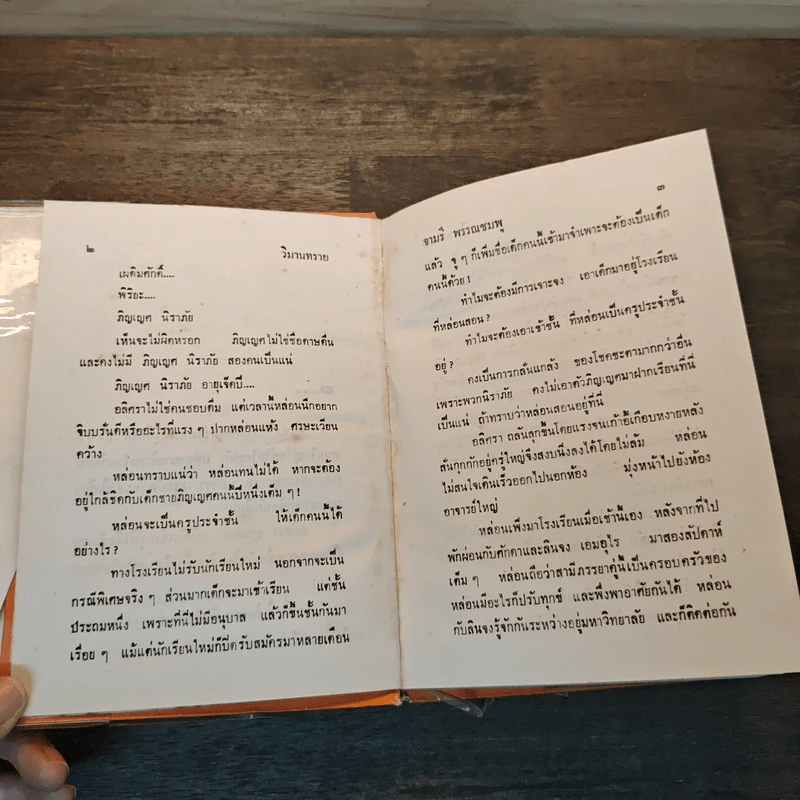 ๒
วิมานทราย
เผดิมศักดิ์....
พิริยะ....
ภิญเญศ นิราภัย
เห็นจะไม่ผิดหรอก ภิญเญศไม่ใช่ชื่อดาษดื่น
และคงไม่มี ภิญเญศ นิราภัย สองคนเป็นแน่
ภิญเญศ นิราภัย อายุเจ็ดปี....
อลิศราไม่ใช่คนชอบดื่ม แต่เวลานี้หล่อนนึกอยาก
จิบบรั่นดีหรืออะไรที่แรง ๆ ปากหล่อนแห้ง ศรษะเวียน
คว้าง
หล่อนทราบแน่ว่า หล่อนทนไม่ได้ หากจะต้อง
อยู่ใกล้ชิดกับเด็กชายภิญเญศคนนี้ปีหนึ่งเต็ม ๆ !
หล่อนจะเป็นครูประจำชั้น ให้เด็กคนนี้ได้
อย่างไร ?
ทางโรงเรียนไม่รับนักเรียนใหม่ นอกจากจะเป็น
กรณีพิเศษจริง ๆ ส่วนมากเด็กจะมาเข้าเรียน แต่ชั้น
ประถมหนึ่ง เพราะที่นี่ไม่มีอนุบาล แล้วก็ขึ้นชั้นกันมา
เรื่อย ๆ แม้แต่นักเรียนใหม่ก็ปิดรับสมัครมาหลายเดือน
๓
จามรี พรรณชมพู
แล้ว จู่ ๆ ก็เพิ่มชื่อเด็กคนนี้เข้ามาจำเพาะจะต้องเป็นเด็ก
คนนี้ด้วย !
ทำไมจะต้องมีการเจาะจง เอาเด็กมาอยู่โรงเรียน
ที่หล่อนสอน ?
ทำไมจะต้องเอาเข้าชั้น ที่หล่อนเป็นครูประจำชั้น
อยู่ ?
คงเป็นการกลั่นแกล้ง ของโชคชะตามากกว่าอื่น
เพราะพวกนิราภัย คงไม่เอาตัวภิญเญศมาฝากเรียนที่นี่
เป็นแน่ ถ้าทราบว่าหล่อนสอนอยู่ที่นี่
อลิศรา ถลันลุกขึ้นโดยแรงจนเก้าอี้เกือบหงายหลัง
สั่นกุกกักอยู่ครู่ใหญ่จึงสงบนิ่งลงได้โดยไม่ล้ม หล่อน
ไม่สนใจเดินเร็วออกไปนอกห้อง มุ่งหน้าไปยังห้อง
อาจารย์ใหญ่
หล่อนเพิ่งมาโรงเรียนเมื่อเช้านี้เอง หลังจากที่ไป
พักผ่อนกับศักดาและลินจง เอมอุไร มาสองสัปดาห์
เต็ม ๆ หล่อนถือว่าสามีภรรยาคู่นี้เป็นครอบครัวของ
หล่อนมีอะไรก็ปรับทุกข์ และพึ่งพาอาศัยกันได้ หล่อน
กับลินจงรู้จักกันระหว่างอยู่มหาวิทยาลัย และก็ติดต่อกัน